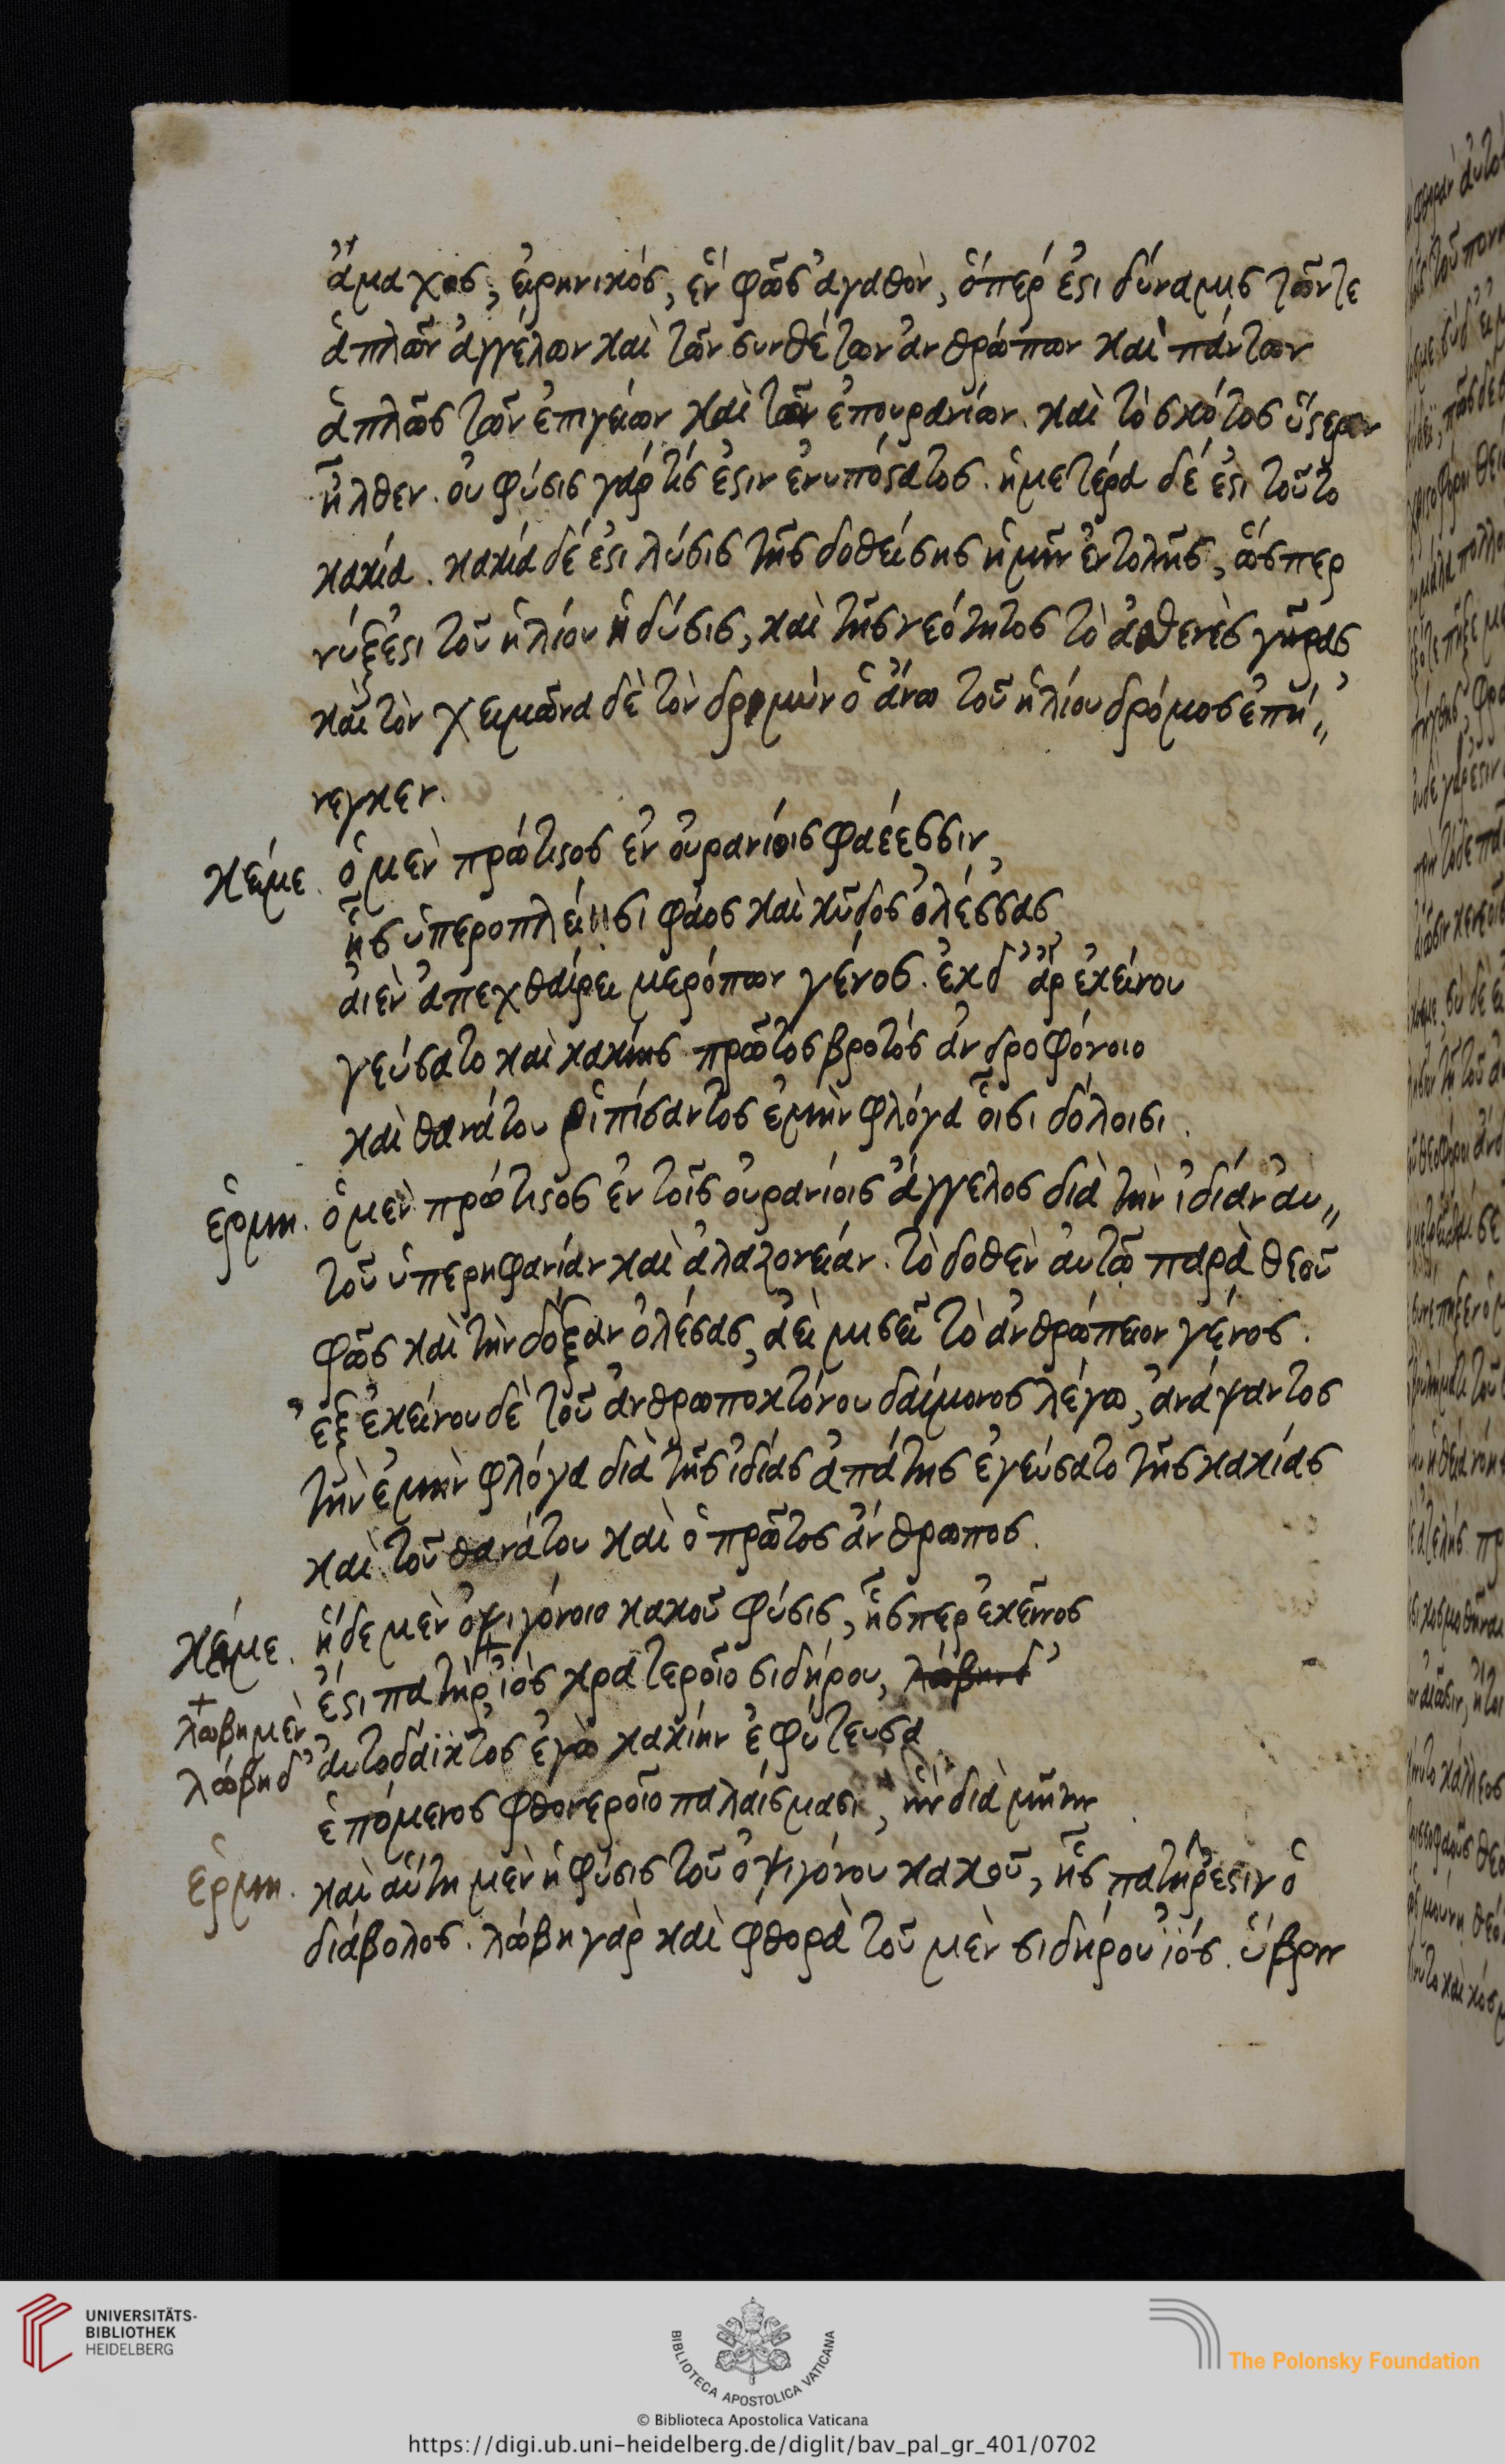 ἄμαχος, εἰρηνικός, ἓν φῶς ἀγαθὸν, ὅπέρ ἐστι δύναμις τῶντε
ἁπλῶν ἀγγέλων καὶ τῶν συνθέτων ἀνθρώπων καὶ πάντων
ἁπλῶς τῶν ἐπιγείων καὶ τῶν ἐπουρανίων. καὶ τὸ σκότος ὕστερον
ἦλθεν. οὐ φύσις γάρ τίς ἐστιν ἐνυπόστατος. ἡμετέρα δέ ἐστι τοῦτο
κακία. κακία δέ ἐστι λύσις τῆς δοθείσης ἡμῖν ἐντολῆς, ὥσπερ
νύξ ἐστι τοῦ ἡλίου ἡ δύσις, καὶ τῆς νεότητος τὸ ἀσθενὲς γῆρας,
καὶ τὸν χειμῶνα δὲ τὸν δριμὺν ὁ ἄνω τοῦ ἡλίου δρόμος ἐπή〃
νεγκεν.
κείμε. ὁ μὲν πρώτιστος ἐν οὐρανίοις φαέεσσιν,
ἧς ὑπεροπλείησι φάος καὶ κῦδος ὀλέσσας,
αἰὲν ἀπεχθαίρει μερόπων γένος. ἐκ δ' ἄρ ἐκείνου
γεύσατο καὶ κακίης πρῶτος βροτός ἀνδροφόνοιο
καὶ θανάτου ῥιπίσαντος ἐμὴν φλόγα οἷσι δόλοισι.
ἑρμη. ὁ μὲν πρώτιστος ἐν τοῖς οὐρανίοις ἄγγελος διὰ τὴν ἰδίαν αὐ〃
τοῦ ὑπερηφανίαν καὶ ἀλαζονείαν. τὸ δοθὲν αὐτῷ παρὰ θεοῦ
φῶς καὶ τὴν δόξαν ὀλέσας, ἀεὶ μισεῖ τὸ ἀνθρώπειον γένος.
ἐξ ἐκείνου δὲ τοῦ ἀνθρωποκτόνου δαίμονος λέγω, ἀνάψαντος
τὴν ἐμὴν φλόγα διὰ τῆς ἰδίας ἀπάτης ἐγεύσατο τῆς κακίας
καὶ τοῦ θανάτου καὶ ὁ πρῶτος ἄνθρωπος.
κείμε. ἥδε μὲν ὀψιγόνοιο κακοῦ φύσις, ἧσπερ ἐκεῖνος
ἐστι πατὴρ, ἰὸς κρατεροῖο σιδήρου, λώβη δ'
+ λώβη μὲν
λώβη δ' αὐτοδάϊκτος ἐγὼ κακίην ἐφύτευσα
ἑπόμενος φθονεροῖο παλαίσμασι, ἣν διὰ μῆτιν
ἑρμη. καὶ αὕτη μὲν ἡ φύσις τοῦ ὀψιγόνου κακοῦ, ἧς πατήρ ἐστιν ὁ
διάβολος. λώβη γὰρ καὶ φθορὰ τοῦ μὲν σιδήρου ἰός. ὕβριν
UNIVERSITÄTS-
BIBLIOTHEK
HEIDELBERG
BIBLIOTECA APOSTOLICA VATICANA
The Polonsky Foundation
© Biblioteca Apostolica Vaticana
https://digi.ub.uni-heidelberg.de/diglit/bav_pal_gr_401/0702